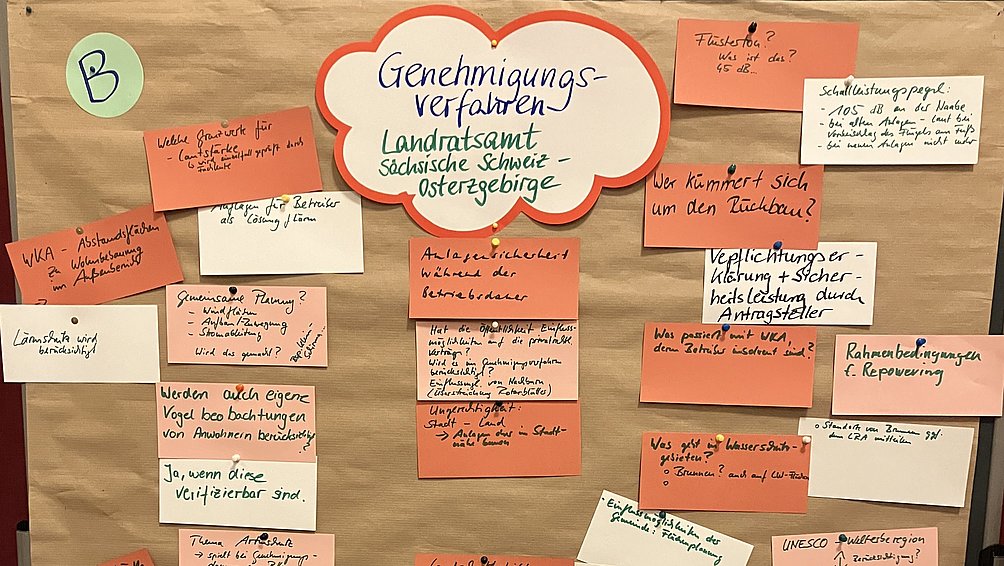 B
Genehmigungs-
verfahren
Landratsamt
Sächsische Schweiz -
Osterzgebirge
Welche Grenzwerte für
- Lautstärke
↳ wird einzelfall geprüft durch
Fachleute
Auflagen für Betreiber
als Lösung f. Lärm
WKA - Abstandsflächen
zu Wohnbebauung
im Außenbereich
→
Lärmschutz wird
berücksichtigt
Gemeinsame Planung?
- Windflächen
- Aufbau/Zuwegung
- Stromableitung
Wird das gemacht?
Werden auch eigene
Vogelbeobachtungen
von Anwohnern berücksichtigt
Ja, wenn diese
verifizierbar sind.
Thema Artenschutz
→ spielt bei Genehmigungs-
Anlagensicherheit
während der
Betriebsdauer
Hat die Öffentlichkeit Einfluss-
möglichkeiten auf die privatrechtl.
Verträge?
Wird es im Genehmigungsverfahren
berücksichtigt?
Einflussmögl. von Nachbarn
(Überstreichung Rotorblätter)
Ungerechtigkeit:
Stadt - Land
→ Anlagen das in Stadt-
nähe bauen
Flüsterton?
Was ist das?
45 dB...
Schallleistungspegel:
- 105 dB an der Nabe
- bei alten Anlagen - laut bei
Vorbeischlag des Flügels am Fuß
- bei neuen Anlagen nicht mehr
Wer kümmert sich
um den Rückbau?
Verplichtungser-
klärung + Sicher-
heitsleistung durch
Antragsteller
Was passiert mit WKA,
deren Betreiber insolvent sind?
Rahmenbedingungen
f. Repowering
Was geht in Wasserschutz-
gebieten?
○ Brunnen? auch auf LW-Flächen
○
○ Standorte von Brunnen ggf.
dem LRA mitteilen
- Einflussmöglichkeiten der
Gemeinde: Flächenplanung
UNESCO - Welterberegion
↑ Berücksichtigung?